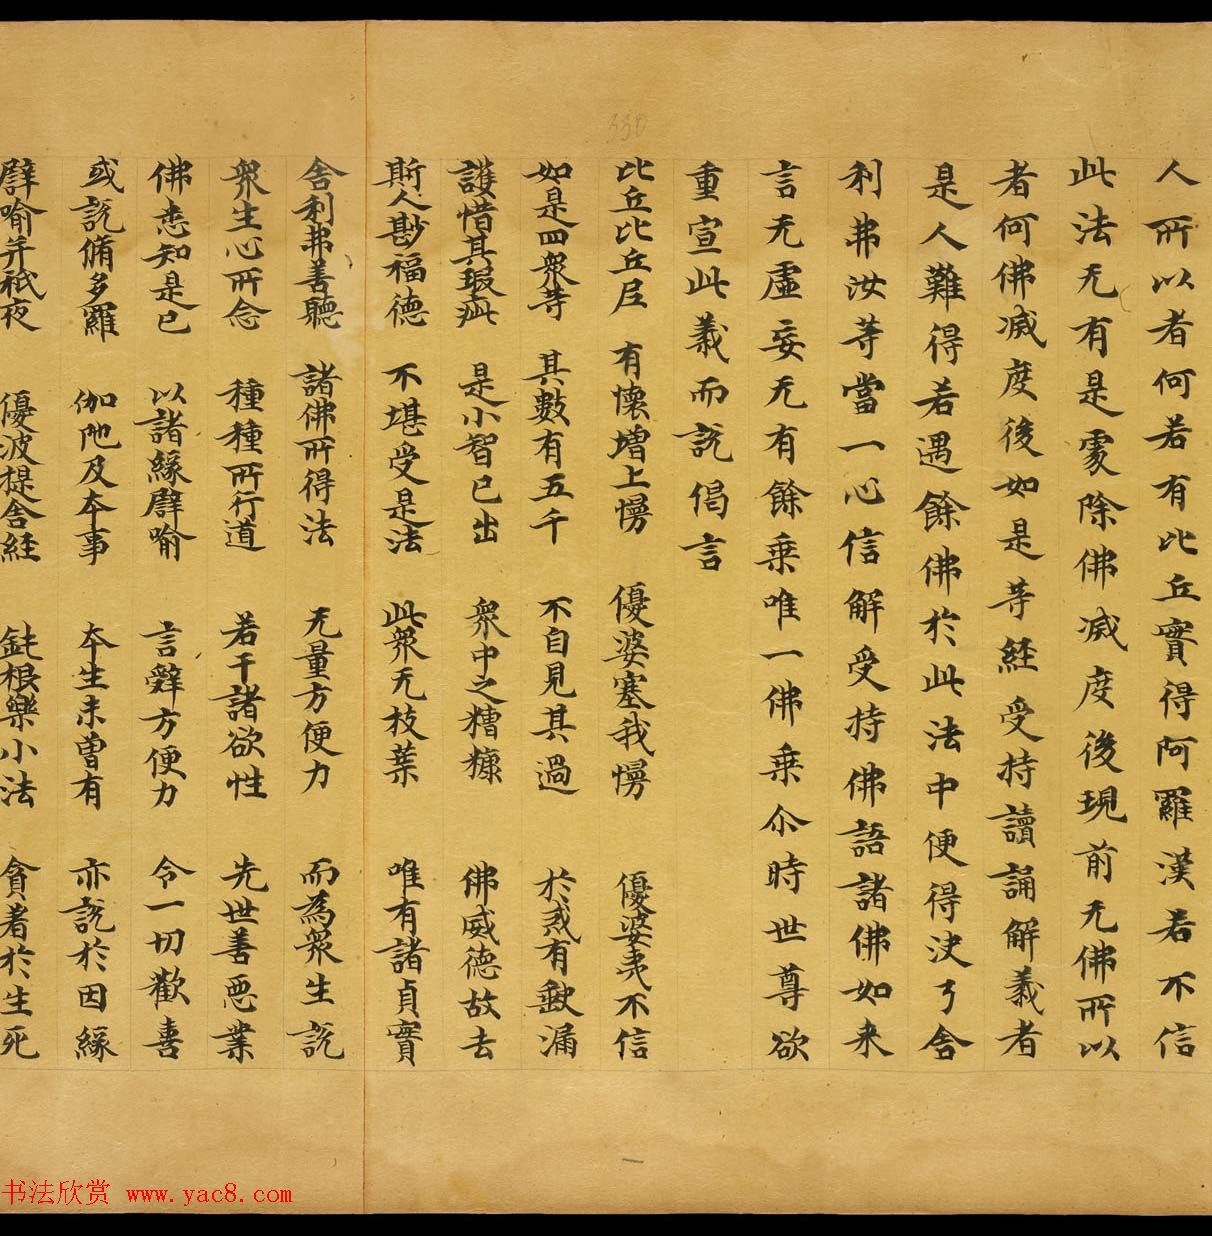 人所以者何若有比丘實得阿羅漢若不信
此法无有是處除佛滅度後現前无佛所以
者何佛滅度後如是等經受持讀誦解義者
是人難得若遇餘佛於此法中便得決了舍
利弗汝等當一心信解受持佛語諸佛如来
言无虛妄无有餘乗唯一佛乗尒時世尊欲
重宣此義而說偈言
比丘比丘尼 有懷增上慢 優婆塞我慢 優婆夷不信
如是四衆等 其數有五千 不自見其過 於戒有缺漏
護惜其瑕疵 是小智已出 衆中之糟糠 佛威德故去
斯人尠福德 不堪受是法 此衆无枝葉 唯有諸貞實
舍利弗善聽 諸佛所得法 无量方便力 而為衆生說
衆生心所念 種種所行道 若干諸欲性 先世善惡業
佛悉知是已 以諸緣譬喻 言辝方便力 令一切歡喜
或說脩多羅 伽陁及本事 本生未曾有 亦說於因緣
譬喻并祇夜 優波提舍経 鈍根樂小法 貪著於生死
330
书法欣赏 www.yac8.com